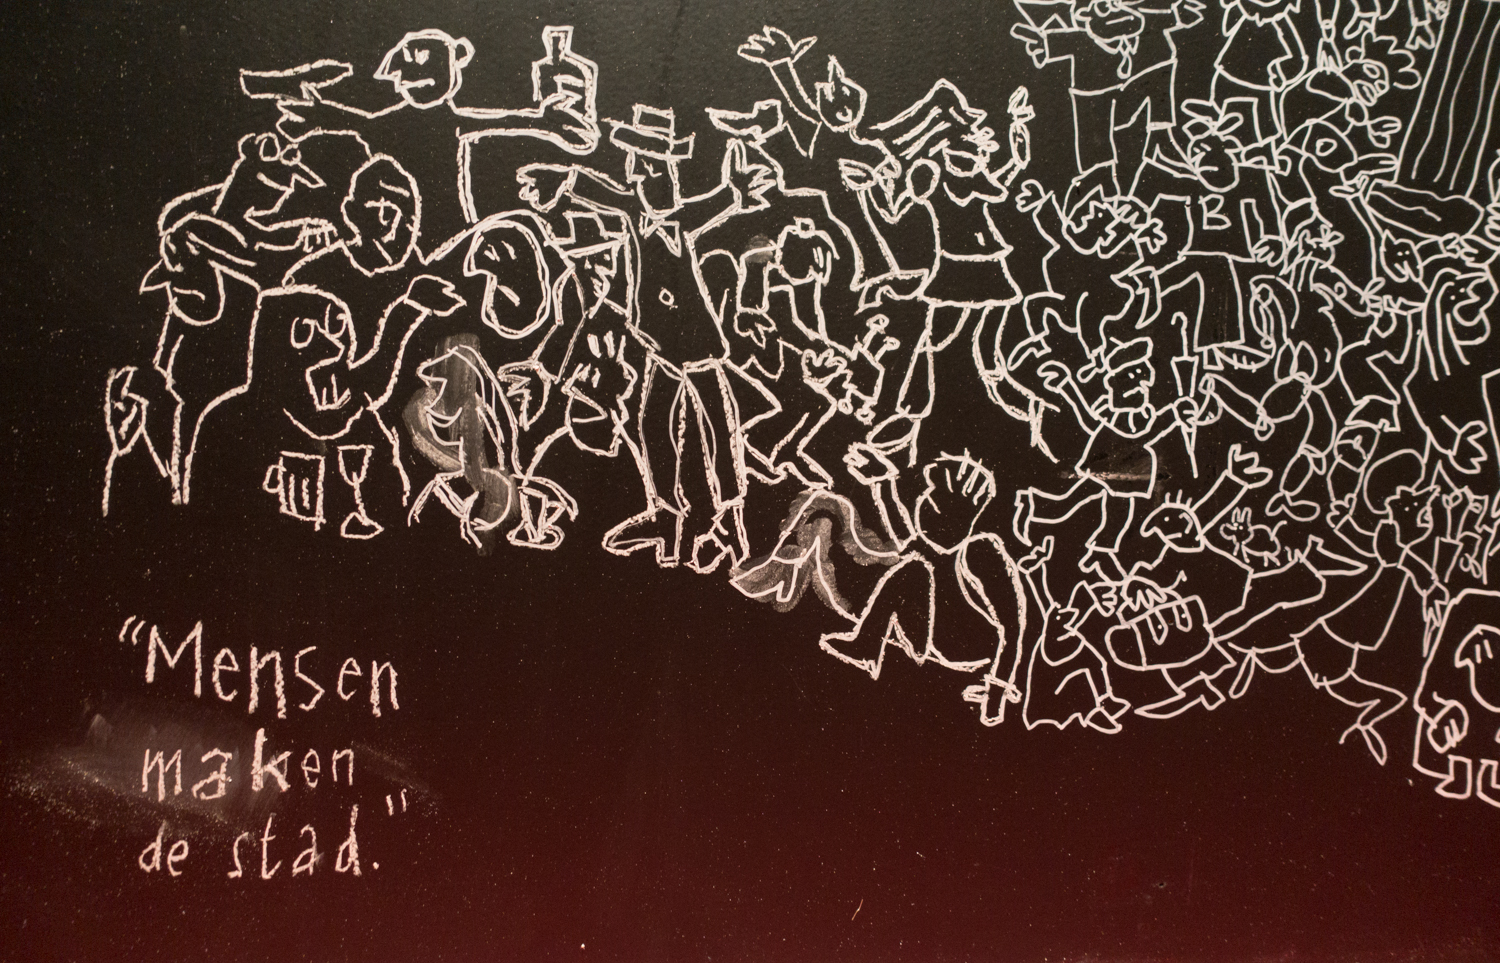 B
"Mensen
maken
de stad."